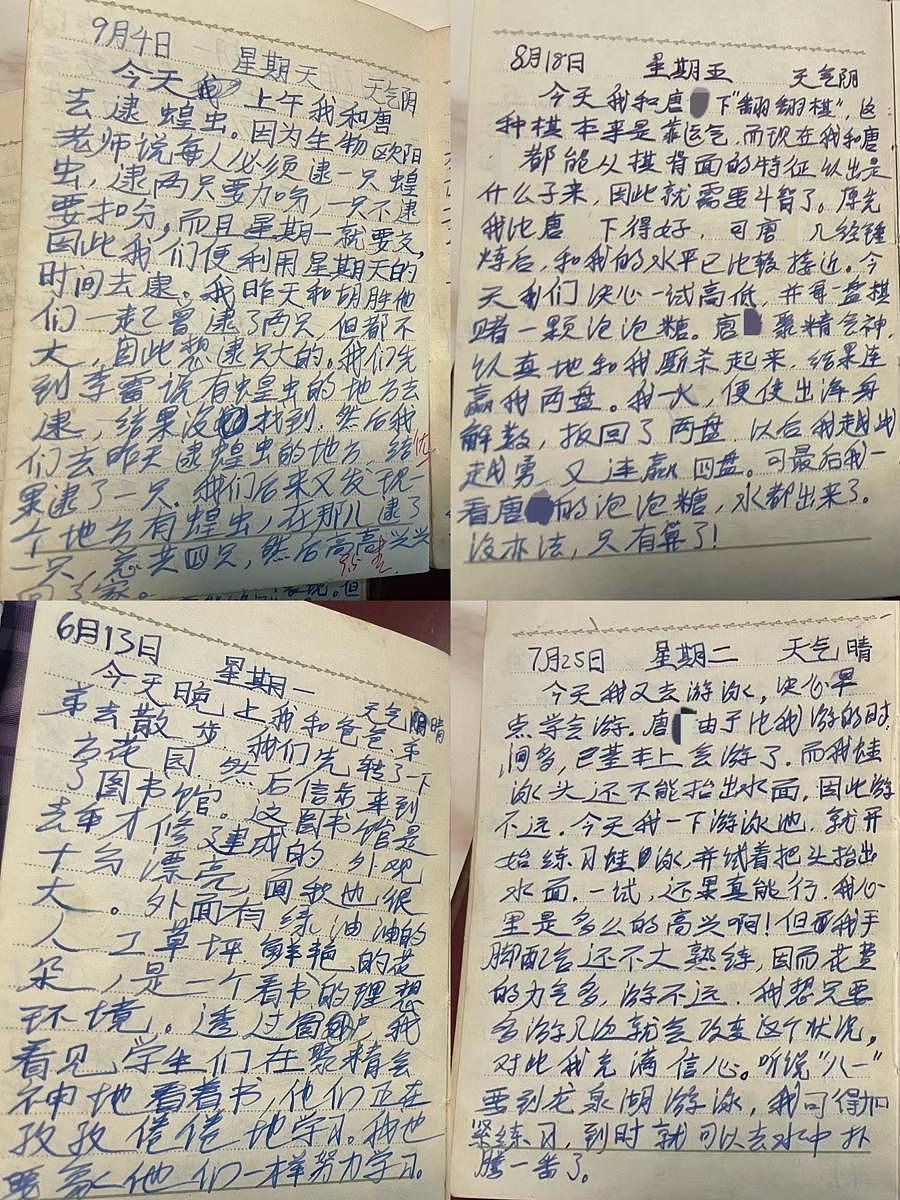 9月4日 星期天 天气阴
今天 上午我和唐
去逮蝗虫。因为生物欧阳
老师说每人必须逮一只蝗
虫,逮两只要加分,一只不逮
要扣分。而且星期一就要交,
因此我们便利用星期天的
时间去逮。我昨天和胡胜他
们一起曾逮了两只,但都不
大,因此想逮只大的。我们先
到李雷说有蝗虫的地方去
逮,结果没找到.然后我
们去昨天逮蝗虫的地方,结
果逮了一只.我们后来又发现一
个地方有蝗虫,在那儿逮了
一只,总共四只,然后高高兴兴
回了家。
优
95
8月18日 星期五 天气阴
今天我和唐 下“翻翻棋”,这
种棋本来是靠运气,而现在我和唐
都能从棋背面的特征认出是
什么子来,因此就需要斗智了。原先
我比唐 下得好,可唐 几经锤
炼后,和我的水平已比较接近。今
天我们决心一试高低,并每一盘棋
赌一颗泡泡糖。唐 聚精会神,
认真地和我厮杀起来,结果连
赢我两盘。我一火,便使出浑身
解数,扳回了两盘.以后我越战
越勇,又连赢四盘。可最后我一
看唐 的泡泡糖,水都出来了。
没办法,只有算了!
6月13日 星期一 天气 晴
今天晚上我和爸爸、弟
弟去散步.我们先转了一下
花园.然后信步来到
了图书馆。这图书馆是
去年才修建成的,外观
十分漂亮,面积也很
大。外面有绿油油的
人工草坪.鲜艳的花
朵,是一个看书的理想
环境。透过窗户,我
看见学生们在聚精会
神地看着书,他们正在
孜孜倦倦地学习。我也
要象他们一样努力学习。
7月25日 星期二 天气晴
今天我又去游泳,决心早
点学会游。唐 由于比我游的时
间多,已基本上会游了。而我蛙
泳头还不能抬出水面,因此游
不远。今天我一下游泳池,就开
始练习蛙泳,并试着把头抬出
水面.一试,还果真能行.我心
里是多么的高兴啊!但我手
脚配合还不大熟练,因而花费
的力气多,游不远.我想只要
多游几次就会改变这个状况,
对此我充满信心。听说“八一”
要到龙泉湖游泳,我可得加
紧练习,到时就可以去水中扑
腾一番了。